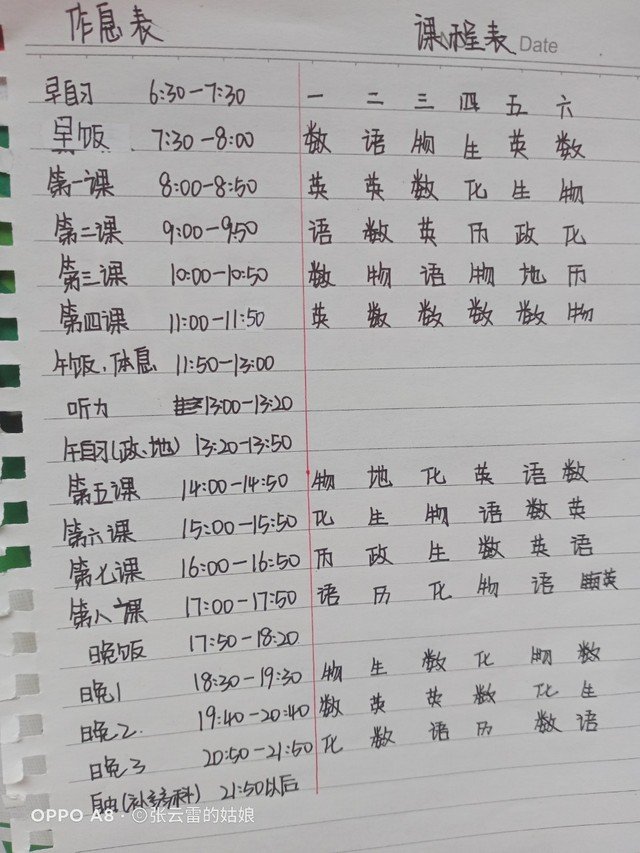 作息表 课程表 Date
早自习 6:30-7:30 一 二 三 四 五 六
早饭 7:30-8:00 数 语 物 生 英 数
第一课 8:00-8:50 英 英 数 化 生 物
第二课 9:00-9:50 语 数 英 历 政 化
第三课 10:00-10:50 数 物 语 物 地 历
第四课 11:00-11:50 英 数 数 数 数 物
午饭、休息 11:50-13:00
听力 13:00-13:20
午自习(政、地) 13:20-13:50
第五课 14:00-14:50 物 地 化 英 语 数
第六课 15:00-15:50 化 生 物 语 数 英
第七课 16:00-16:50 历 政 生 数 英 语
第八课 17:00-17:50 语 历 化 物 语 英
晚饭 17:50-18:20
晚1 18:30-19:30 物 生 数 化 物 数
晚2 19:40-20:40 数 英 英 数 化 生
晚3 20:50-21:50 化 数 语 历 数 语
自由(补弱科) 21:50以后
OPPO A8 · ©张云雷的姑娘